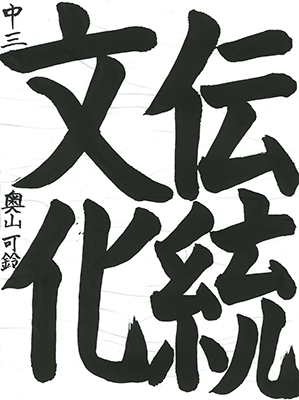 伝統
文化
中三 奥山可鈴